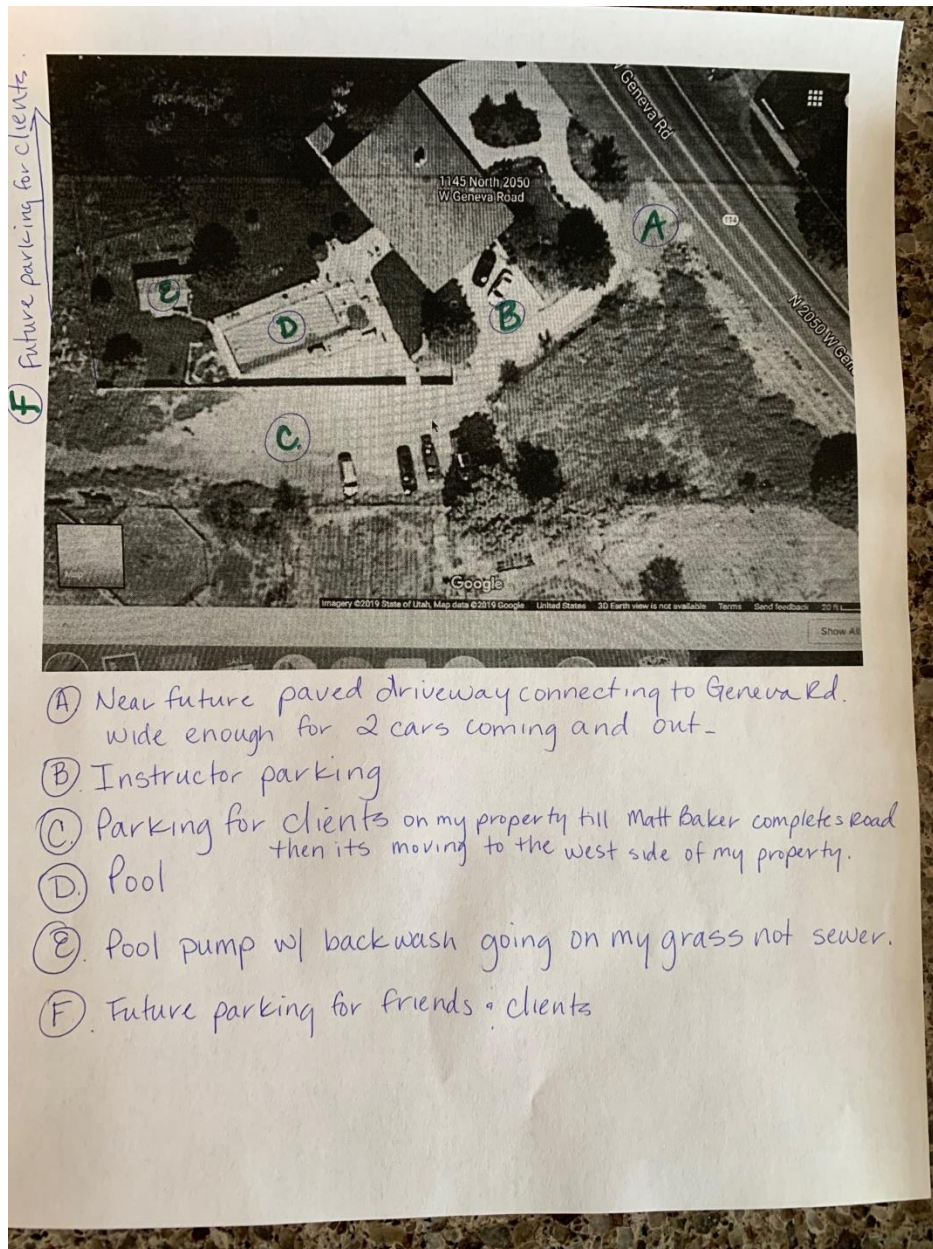 (F) Future parking for clients.
W Geneva Rd
1145 North 2050
W Geneva Road
A
114
E
D
B
N 2050 W Gen
C.
Google
Imagery ©2019 State of Utah, Map data ©2019 Google United States 3D Earth view is not available Terms Send feedback 20 ft
Show All
(A) Near future paved driveway connecting to Geneva Rd.
wide enough for 2 cars coming and out-
(B). Instructor parking
(C). Parking for clients on my property till Matt Baker completes Road
then its moving to the west side of my property.
(D.) Pool
(E). Pool pump w/ backwash going on my grass not sewer.
(F). Future parking for friends & clients